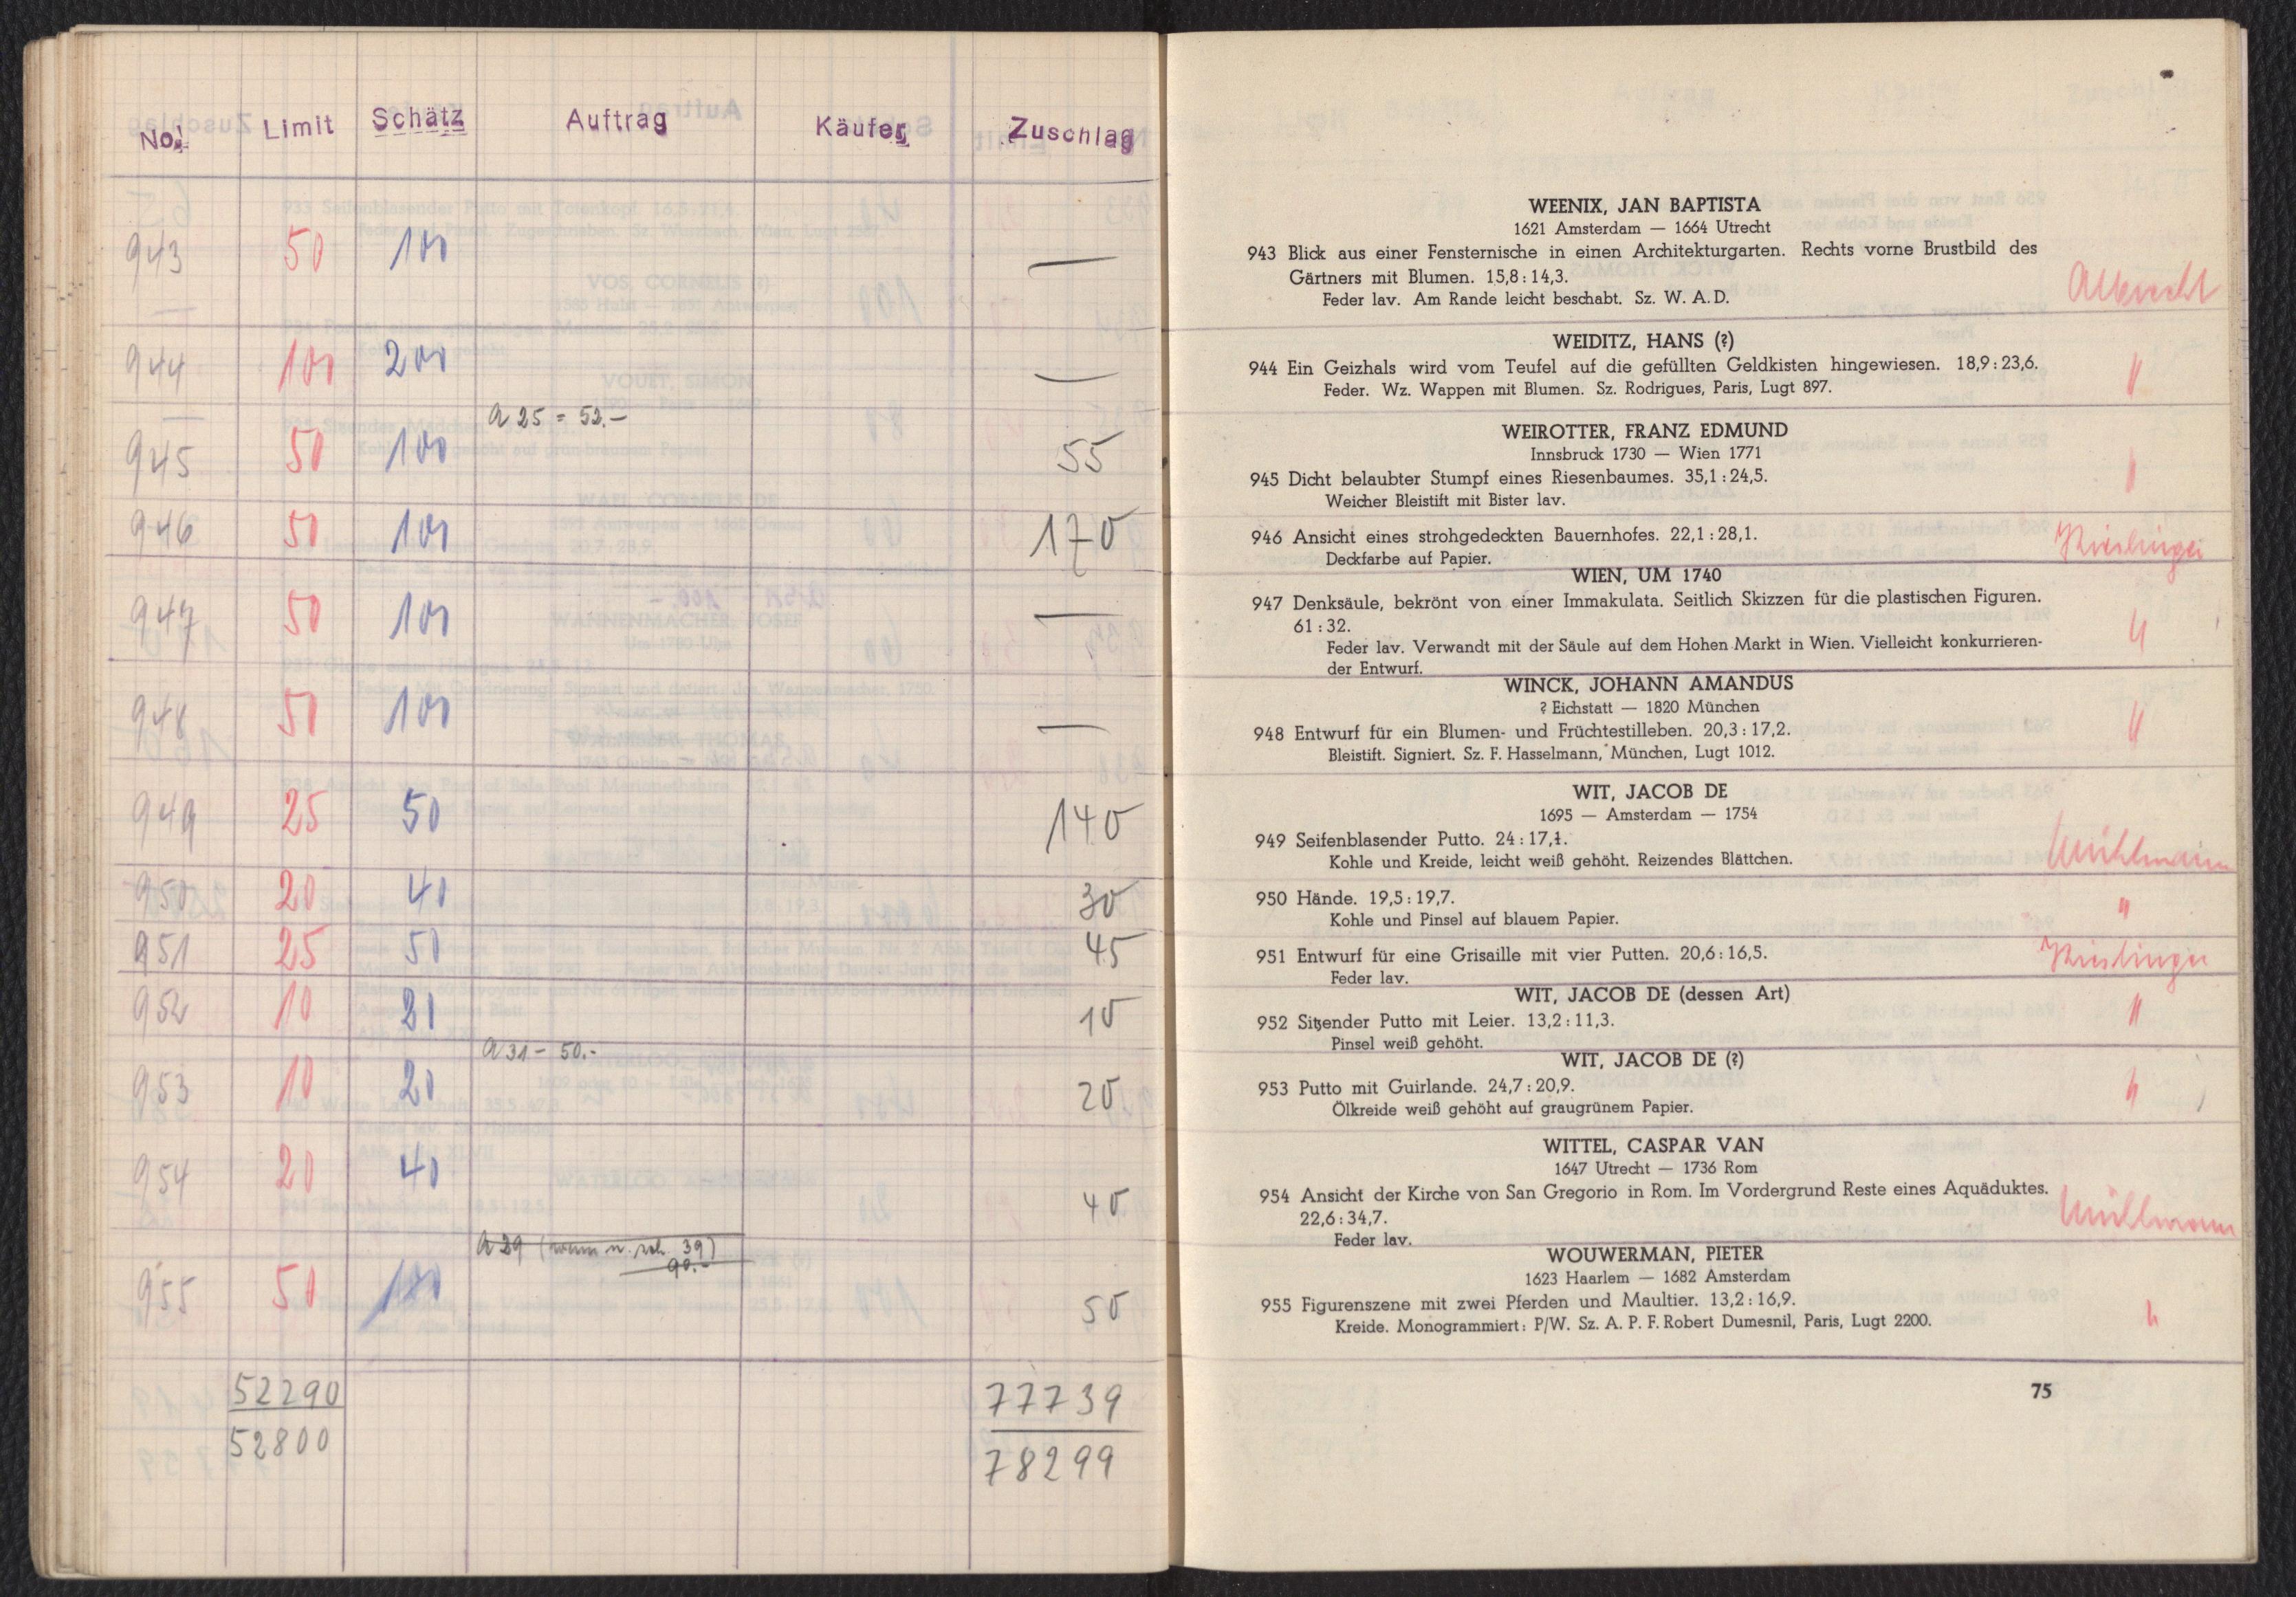 No. Limit Schätz Auftrag Käufer Zuschlag
943 50 100 —
944 100 200 —
a 25 = 52.-
945 50 100 55
946 50 100 170
947 50 100 —
948 50 100 —
949 25 50 140
950 20 40 30
951 25 50 45
952 10 20 10
a 31 - 50.-
953 10 20 20
954 20 40 40
a 29 39)
90.-
955 50 100 50
52290 77739
52800 78299
WEENIX, JAN BAPTISTA
1621 Amsterdam — 1664 Utrecht
943 Blick aus einer Fensternische in einen Architekturgarten. Rechts vorne Brustbild des
Gärtners mit Blumen. 15,8 : 14,3.
Feder lav. Am Rande leicht beschabt. Sz. W. A. D.
Albrecht
WEIDITZ, HANS (?)
944 Ein Geizhals wird vom Teufel auf die gefüllten Geldkisten hingewiesen. 18,9 : 23,6.
Feder. Wz. Wappen mit Blumen. Sz. Rodrigues, Paris, Lugt 897.
"
WEIROTTER, FRANZ EDMUND
Innsbruck 1730 — Wien 1771
945 Dicht belaubter Stumpf eines Riesenbaumes. 35,1 : 24,5.
Weicher Bleistift mit Bister lav.
"
946 Ansicht eines strohgedeckten Bauernhofes. 22,1 : 28,1.
Deckfarbe auf Papier.
WIEN, UM 1740
947 Denksäule, bekrönt von einer Immakulata. Seitlich Skizzen für die plastischen Figuren.
61 : 32.
Feder lav. Verwandt mit der Säule auf dem Hohen Markt in Wien. Vielleicht konkurrieren-
der Entwurf.
"
WINCK, JOHANN AMANDUS
? Eichstatt — 1820 München
948 Entwurf für ein Blumen- und Früchtestilleben. 20,3 : 17,2.
Bleistift. Signiert. Sz. F. Hasselmann, München, Lugt 1012.
"
WIT, JACOB DE
1695 — Amsterdam — 1754
949 Seifenblasender Putto. 24 : 17,1.
Kohle und Kreide, leicht weiß gehöht. Reizendes Blättchen.
Mühlmann
950 Hände. 19,5 : 19,7.
Kohle und Pinsel auf blauem Papier.
"
951 Entwurf für eine Grisaille mit vier Putten. 20,6 : 16,5.
Feder lav.
WIT, JACOB DE (dessen Art)
952 Sitzender Putto mit Leier. 13,2 : 11,3.
Pinsel weiß gehöht.
"
WIT, JACOB DE (?)
953 Putto mit Guirlande. 24,7 : 20,9.
Ölkreide weiß gehöht auf graugrünem Papier.
"
WITTEL, CASPAR VAN
1647 Utrecht — 1736 Rom
954 Ansicht der Kirche von San Gregorio in Rom. Im Vordergrund Reste eines Aquäduktes.
22,6 : 34,7.
Feder lav.
Mühlmann
WOUWERMAN, PIETER
1623 Haarlem — 1682 Amsterdam
955 Figurenszene mit zwei Pferden und Maultier. 13,2 : 16,9.
Kreide. Monogrammiert: P/W. Sz. A. P. F. Robert Dumesnil, Paris, Lugt 2200.
"
75